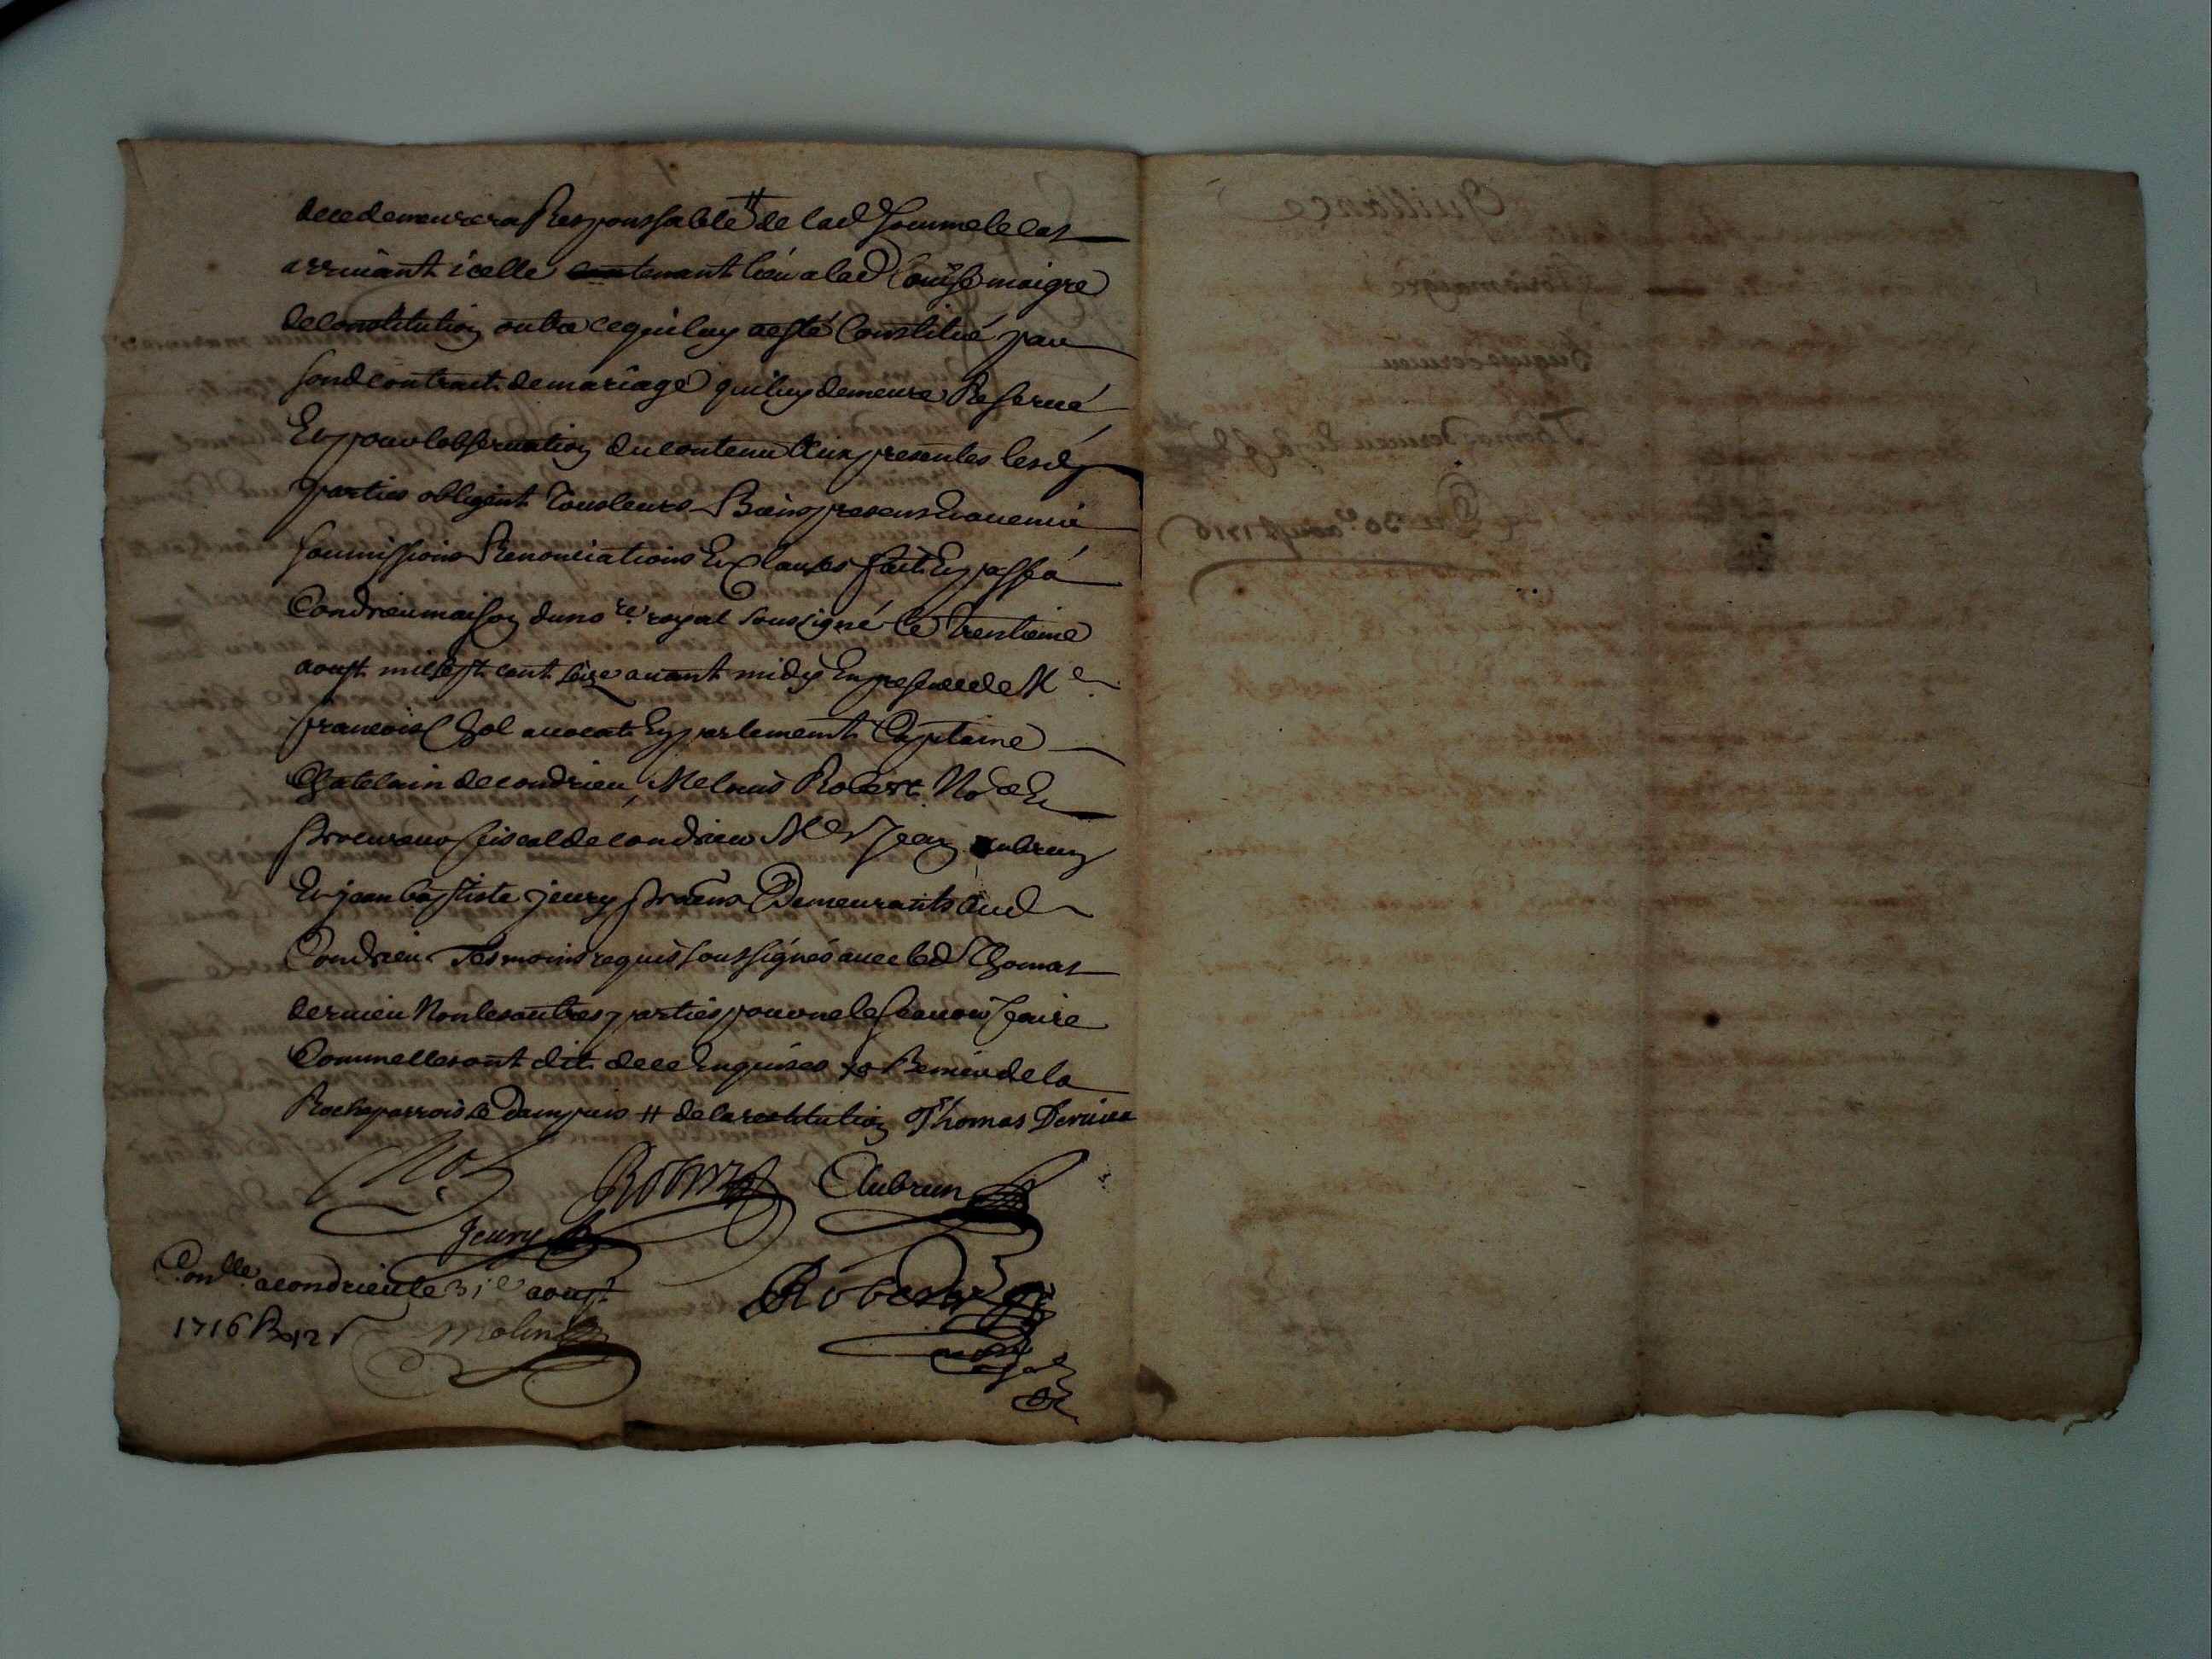 dece demeurera Responssable # de lad somme le cas
arrivant icelle tenant lieu a lad Louise maigre
de Constitution outre ce qui luy a esté Constitué par
sond contract de mariage qui luy demeure Reservé
Et pour lobservation du contenu Aux presentes lesd
parties obligent Tous leurs Biens presens Et avenir
soumissions Renonciations Et Clauses fait Et passé a
Condrieu maison du no.re royal soussigné le Trentieme
aoust mil sept cent seize avant midy En presence de Me
francois Chol avocat En parlement Capitaine
Chatelain de condrieu, Me louis Robert No.re Et
procureur fiscal de condrieu Mes Jean aubrun
Et jean baptiste jeury Demeurants Aud
Condrieu Tesmoins requis soussignés avec led Thomas
dervieu Non les autres parties pour ne le scavoir faire
Comme elles ont dit de ce Enquises de la
Roche parroisse Dampuis # de la restitution Thomas Dervieu
Chol Robert Aubrun
Jeury
Conlle a condrieu le 31e aoust Robert
1716 R 12 s Molin
Quittance
Louis maigre
hugues dervieu
Thomas dervieu
Du 30e aoust 1716